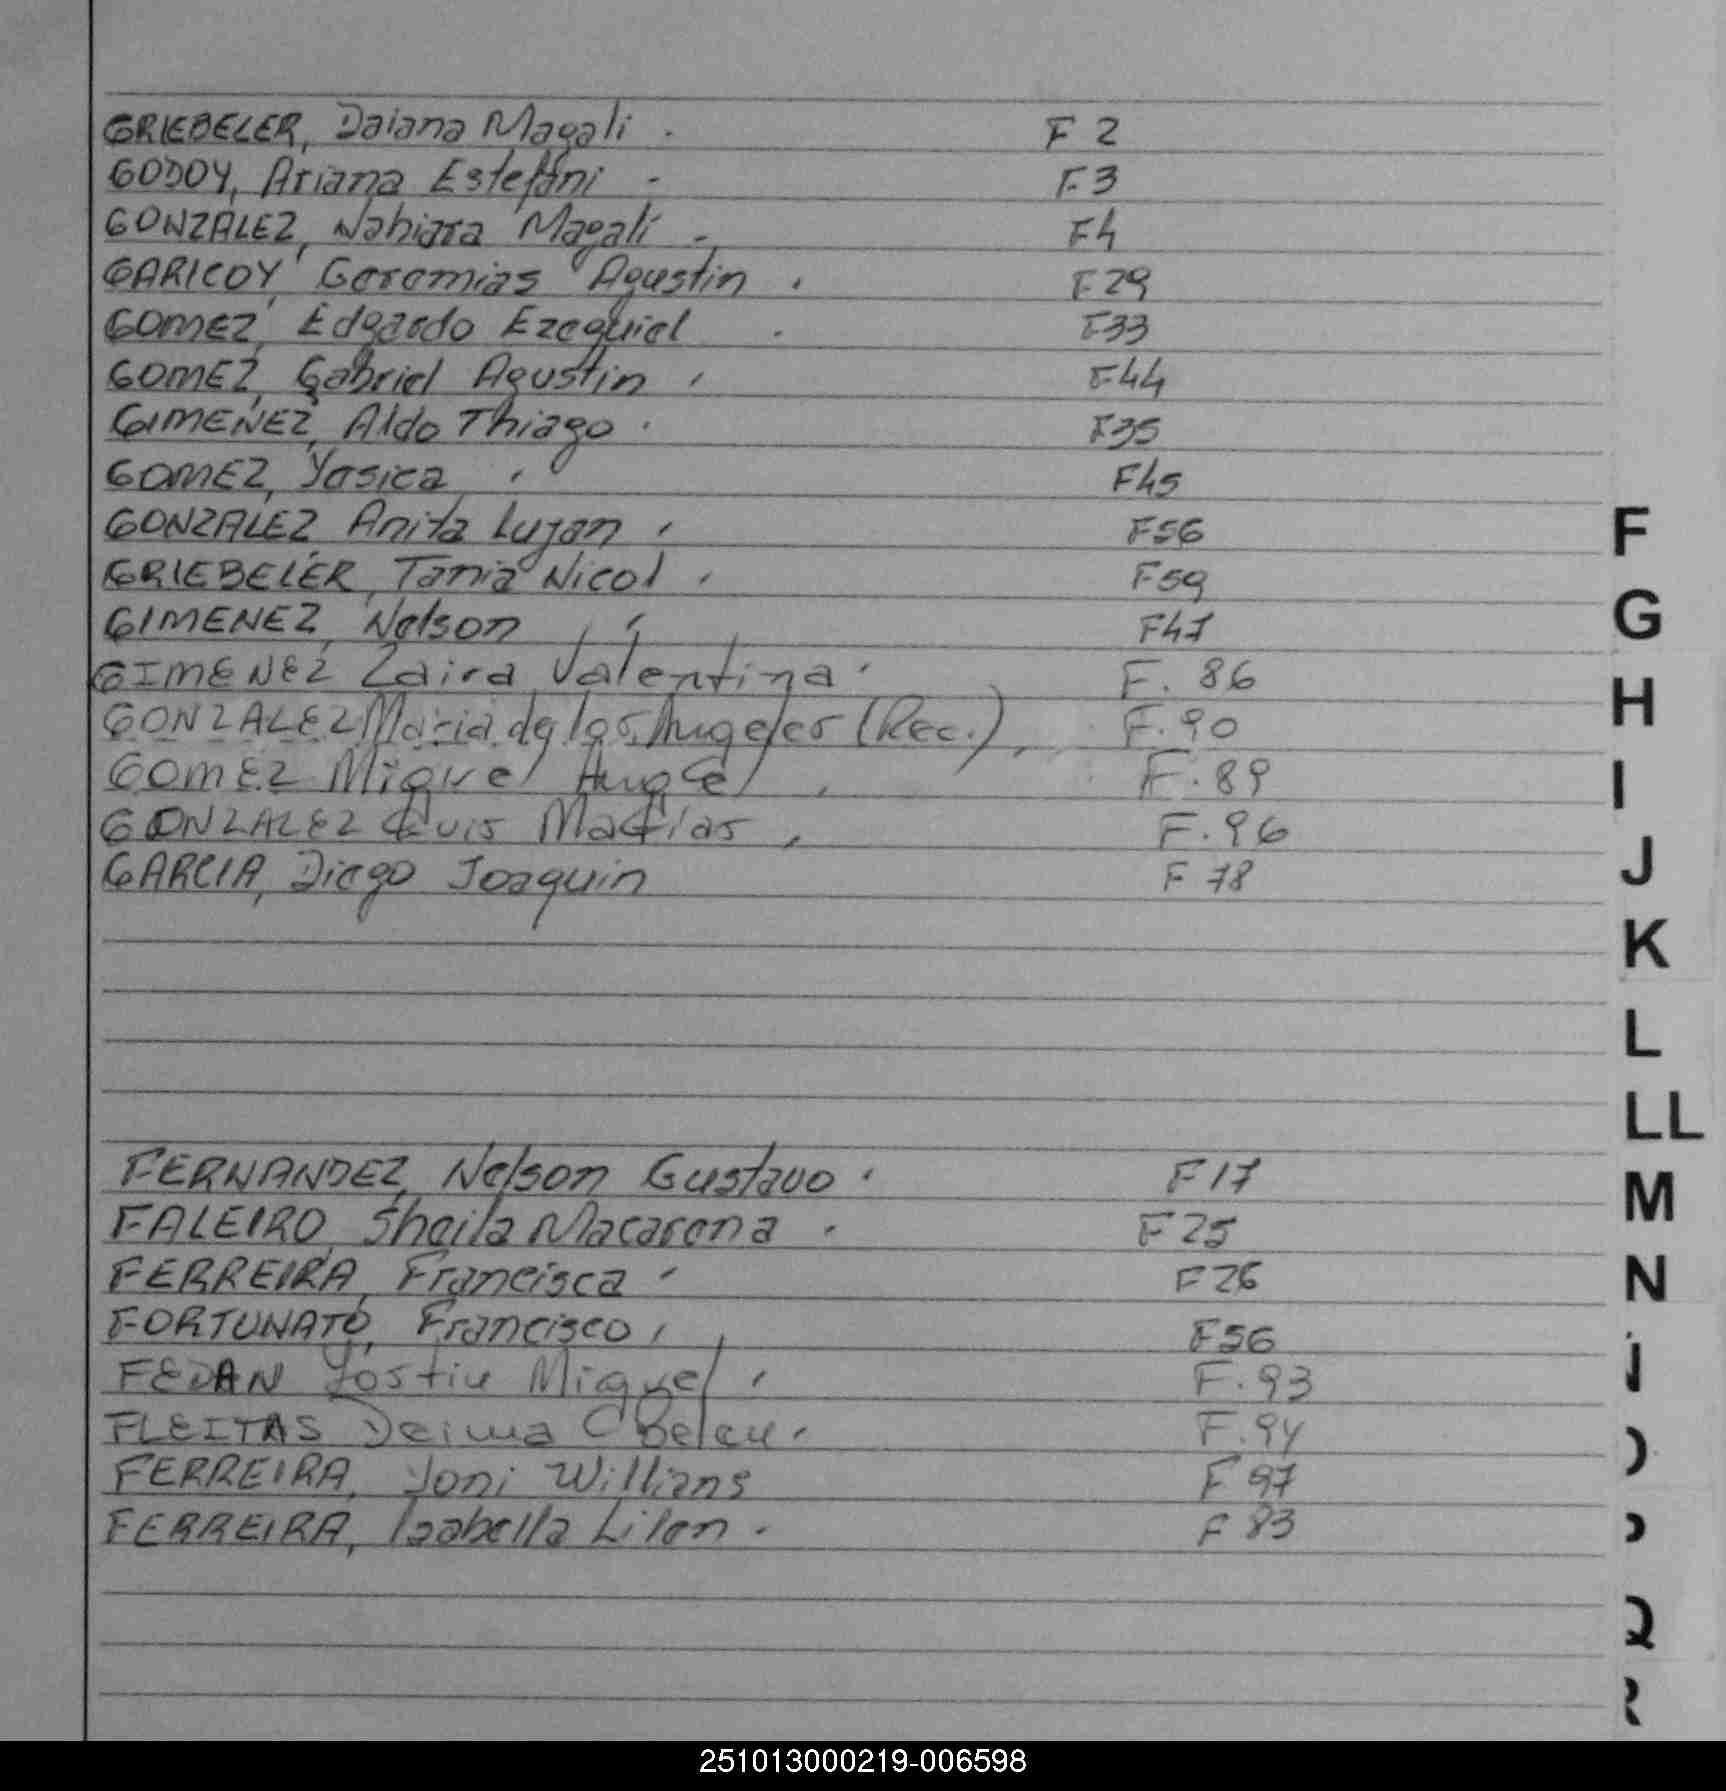 GRIEBELER, Daiana Magali . F 2
GODOY, Ariana Estefani - F.3
GONZALEZ, Nahiara Magali - F4
GARICOY, Geremias Agustin . F29
GOMEZ, Edgardo Ezequiel . F33
GOMEZ, Gabriel Agustin , F44
GIMENEZ, Aldo Thiago . F35
GOMEZ, Yasica , F45
GONZALEZ, Anita Lujan , F56
GRIEBELER, Tania Nicol , F59
GIMENEZ, Nelson , F47
GIMENEZ Zaira Valentina . F. 86
GONZALEZ Maria de los Angeles (Rec.) , F. 90
GOMEZ Miguel Angel , F. 89
GONZALEZ Luis Matias , F. 96
GARCIA, Diego Joaquin F 78
FERNANDEZ, Nelson Gustavo . F17
FALEIRO, Sheila Macarena . F25
FERREIRA, Francisca . F26
FORTUNATO, Francisco , F56
FEDAN Yostin Miguel , F. 93
FLEITAS Deima Belen . F. 94
FERREIRA, Yoni Willians F 97
FERREIRA, Isabella Lilen . F 83
F
G
H
I
J
K
L
LL
M
N
Q
R
251013000219-006598